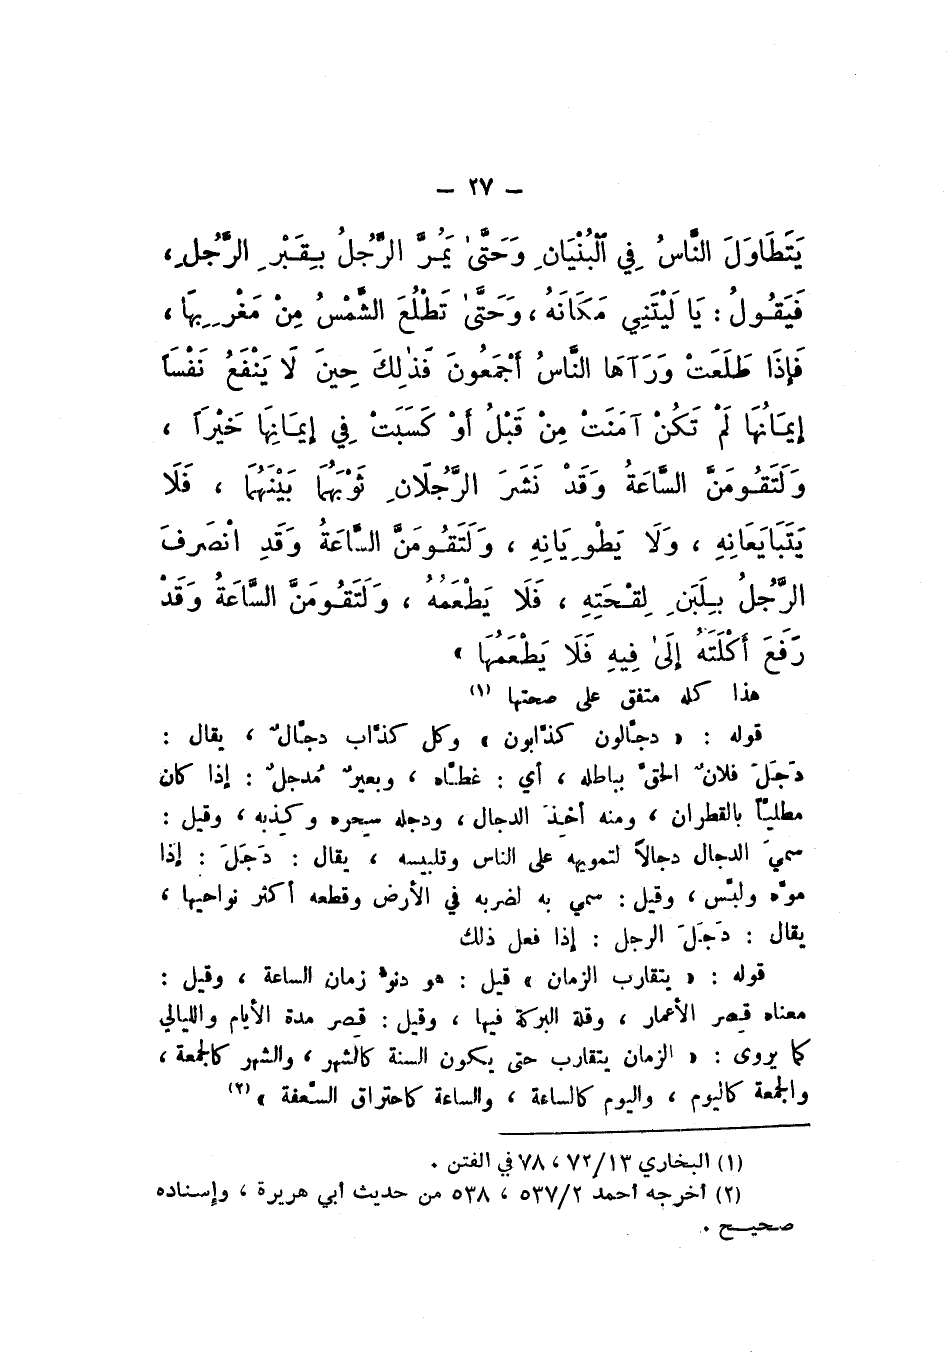 — ٢٧ —
يَتَطَاوَلَ النَّاسُ فِي ٱلْبُنْيَانِ وَحَتَّىٰ يَمُرَّ الرَّجُلُ بِقَبْرِ الرَّجُلِ،
فَيَقُولُ : يَا لَيْتَنِي مَكَانَهُ ، وَحَتَّىٰ تَطْلُعَ الشَّمْسُ مِنْ مَغْرِبِهَا ،
فَإِذَا طَلَعَتْ وَرَآهَا النَّاسُ أَجْمَعُونَ فَذٰلِكَ حِينَ لَا يَنْفَعُ نَفْسَاً
إِيمَانُهَا لَمْ تَكُنْ آمَنَتْ مِنْ قَبْلُ أَوْ كَسَبَتْ فِي إِيمَانِهَا خَيْرَاً ،
وَلَتَقُومَنَّ السَّاعَةُ وَقَدْ نَشَرَ الرَّجُلَانِ ثَوْبَهُمَا بَيْنَهُمَا ، فَلَا
يَتَبَايَعَانِهِ ، وَلَا يَطْوِيَانِهِ ، وَلَتَقُومَنَّ السَّاعَةُ وَقَدِ انْصَرفَ
الرَّجُلُ بِلَبَنِ لِقْحَتِهِ ، فَلَا يَطْعَمُهُ ، وَلَتَقُومَنَّ السَّاعَةُ وَقَدْ
رَفَعَ أَكْلَتَهُ إِلَىٰ فِيهِ فَلَا يَطْعَمُهَا »
هذا كله متفق على صحتها (١)
قوله : « دجّالون كذّابون » وكل كذّاب دجّالٌ ، يقال :
دَجَلَ فلانٌ الحقَّ بباطله ، أي : غطّاه ، وبعيرٌ مُدجلٌ : إذا كان
مطليّاً بالقطران ، ومنه أخِذَ الدجال ، ودجله سحره وكذبه ، وقيل :
سميَ الدجال دجالاً لتمويهه على الناس وتلبيسه ، يقال : دَجَلَ : إذا
موّه ولبّس ، وقيل : سمي به لضربه في الأرض وقطعه أكثر نواحيها ،
يقال : دَجَلَ الرجل : إذا فعل ذلك
قوله : « يتقارب الزمان » قيل : هو دنوّ زمان الساعة ، وقيل :
معناه قصر الأعمار ، وقلة البركة فيها ، وقيل : قصر مدة الأيام والليالي
كما يروى : « الزمان يتقارب حتى يكون السنة كالشهر ، والشهر كالجمعة ،
والجمعة كاليوم ، واليوم كالساعة ، والساعة كاحتراق السّعفة » (٢)
(١) البخاري ٧٢/١٣ ، ٧٨ في الفتن .
(٢) أخرجه أحمد ٥٣٧/٢ ، ٥٣٨ من حديث أبي هريرة ، وإسناده
صحيح .